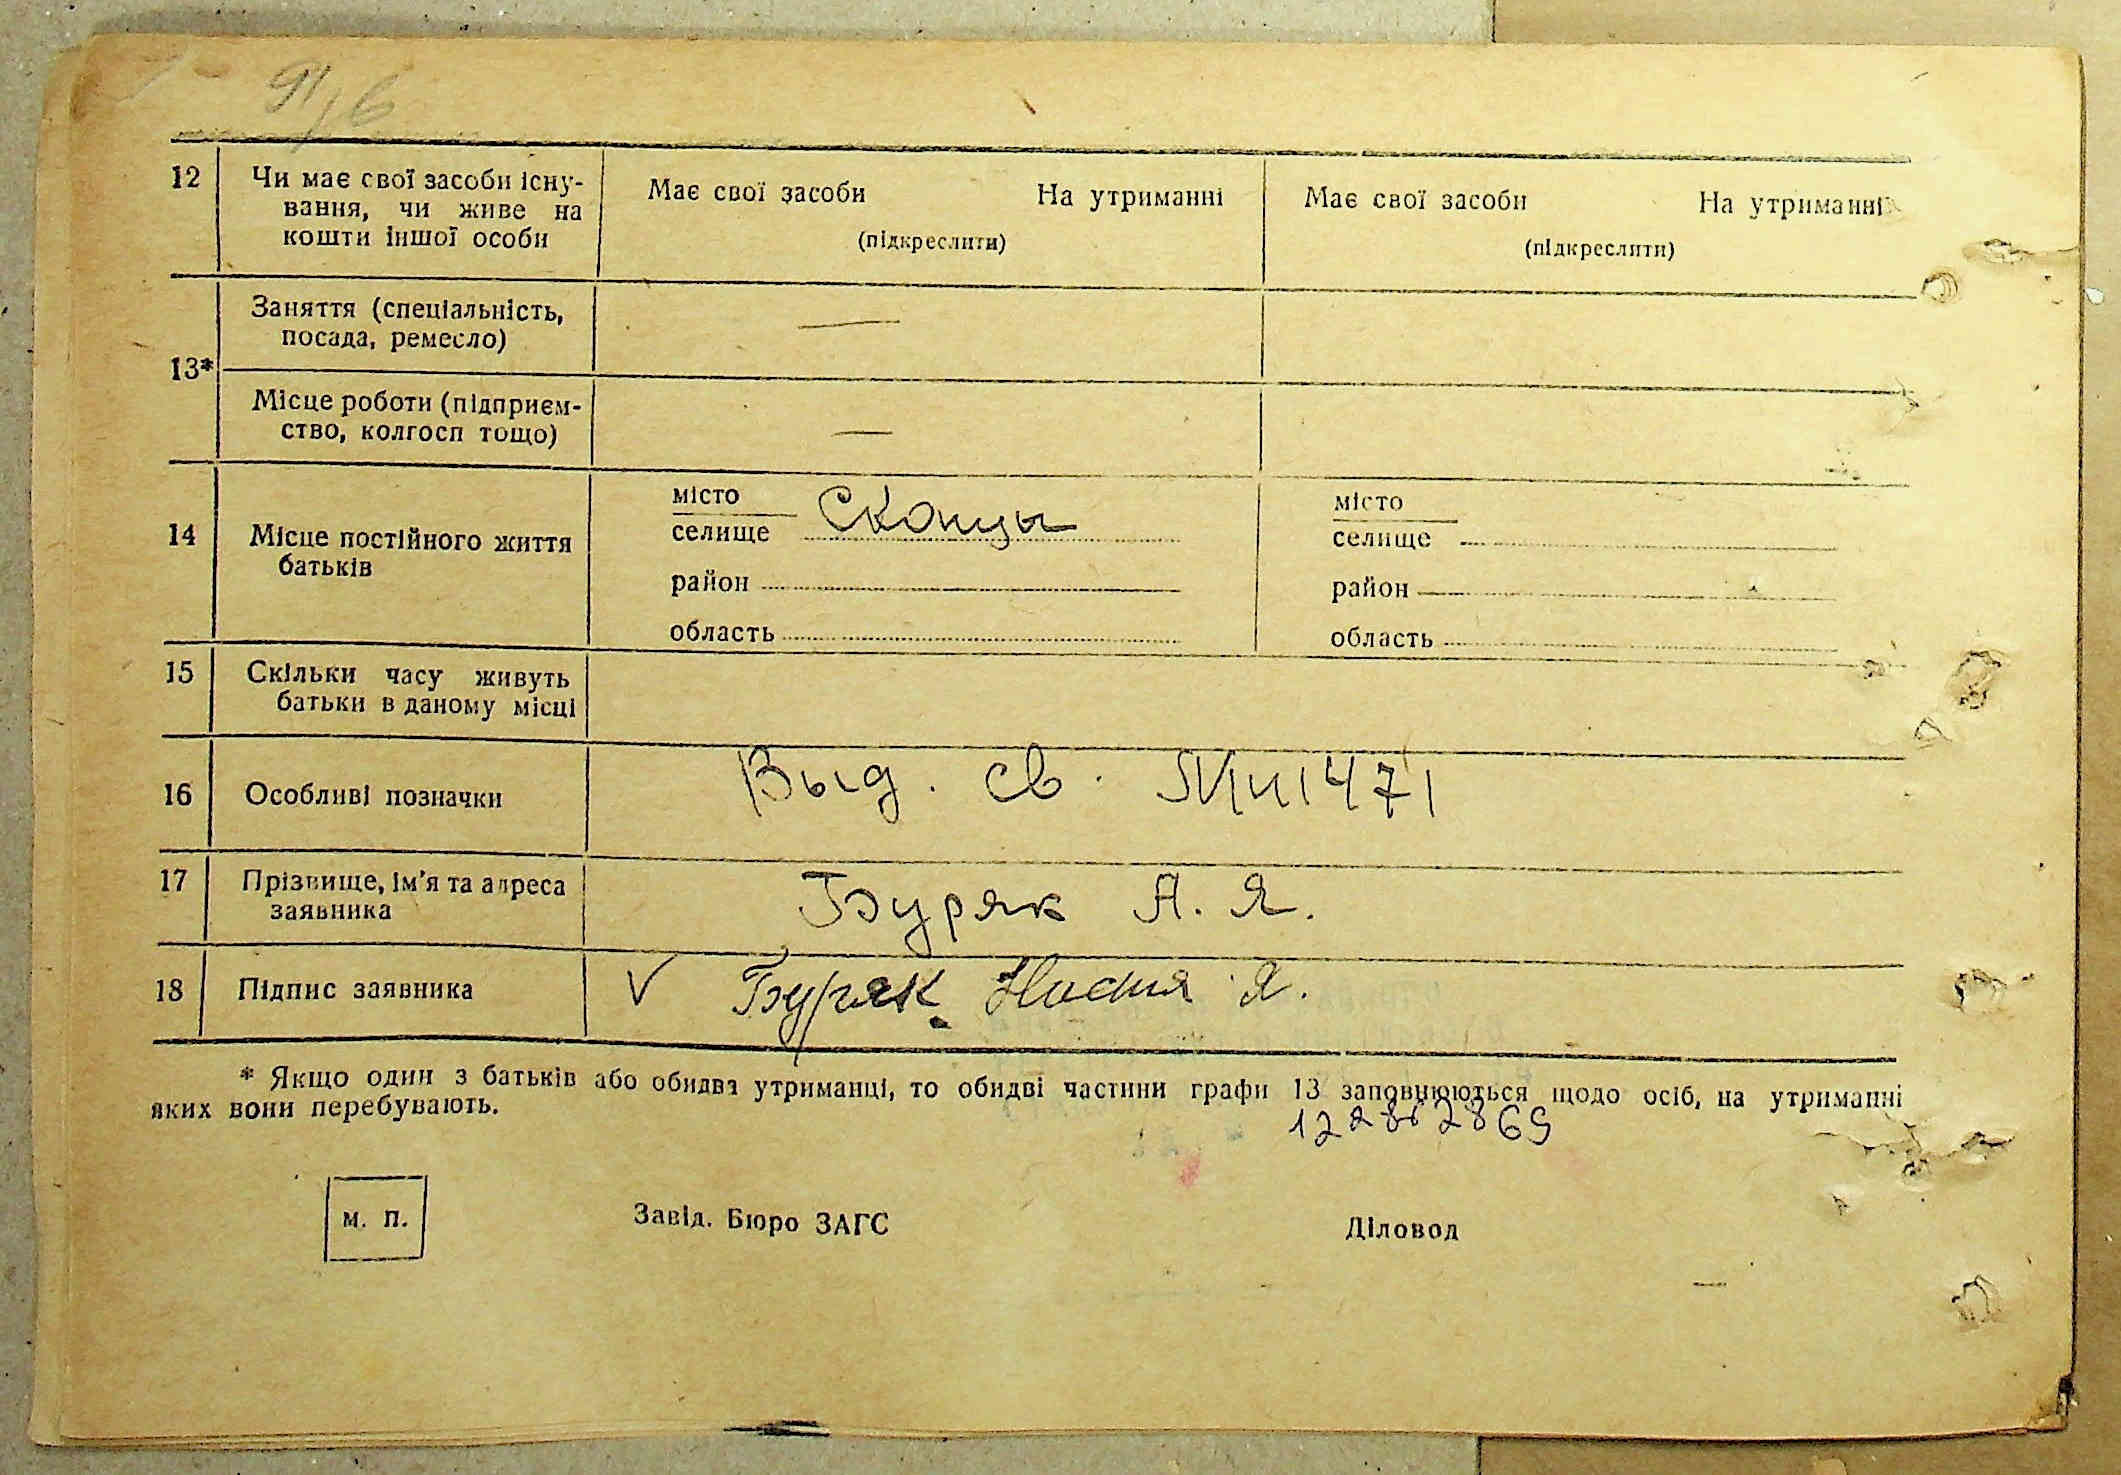 91/6
12 Чи має свої засоби існу-
вання, чи живе на
кошти іншої особи
Має свої засоби На утриманні
(підкреслити)
Має свої засоби На утриманні
(підкреслити)
13*
Заняття (спеціальність,
посада, ремесло)
—
Місце роботи (підприєм-
ство, колгосп тощо)
—
14 Місце постійного життя
батьків
місто
селище Сконцы
район
область
місто
селище
район
область
15 Скільки часу живуть
батьки в даному місці
16 Особливі позначки
Выд. св. 1471
17 Прізвище, ім'я та адреса
заявника
Буряк А. Я.
18 Підпис заявника
V Буряк Я.
* Якщо один з батьків або обидва утриманці, то обидві частини графи 13 заповнюються щодо осіб, на утриманні
яких вони перебувають.
м. п.
Завід. Бюро ЗАГС
Діловод